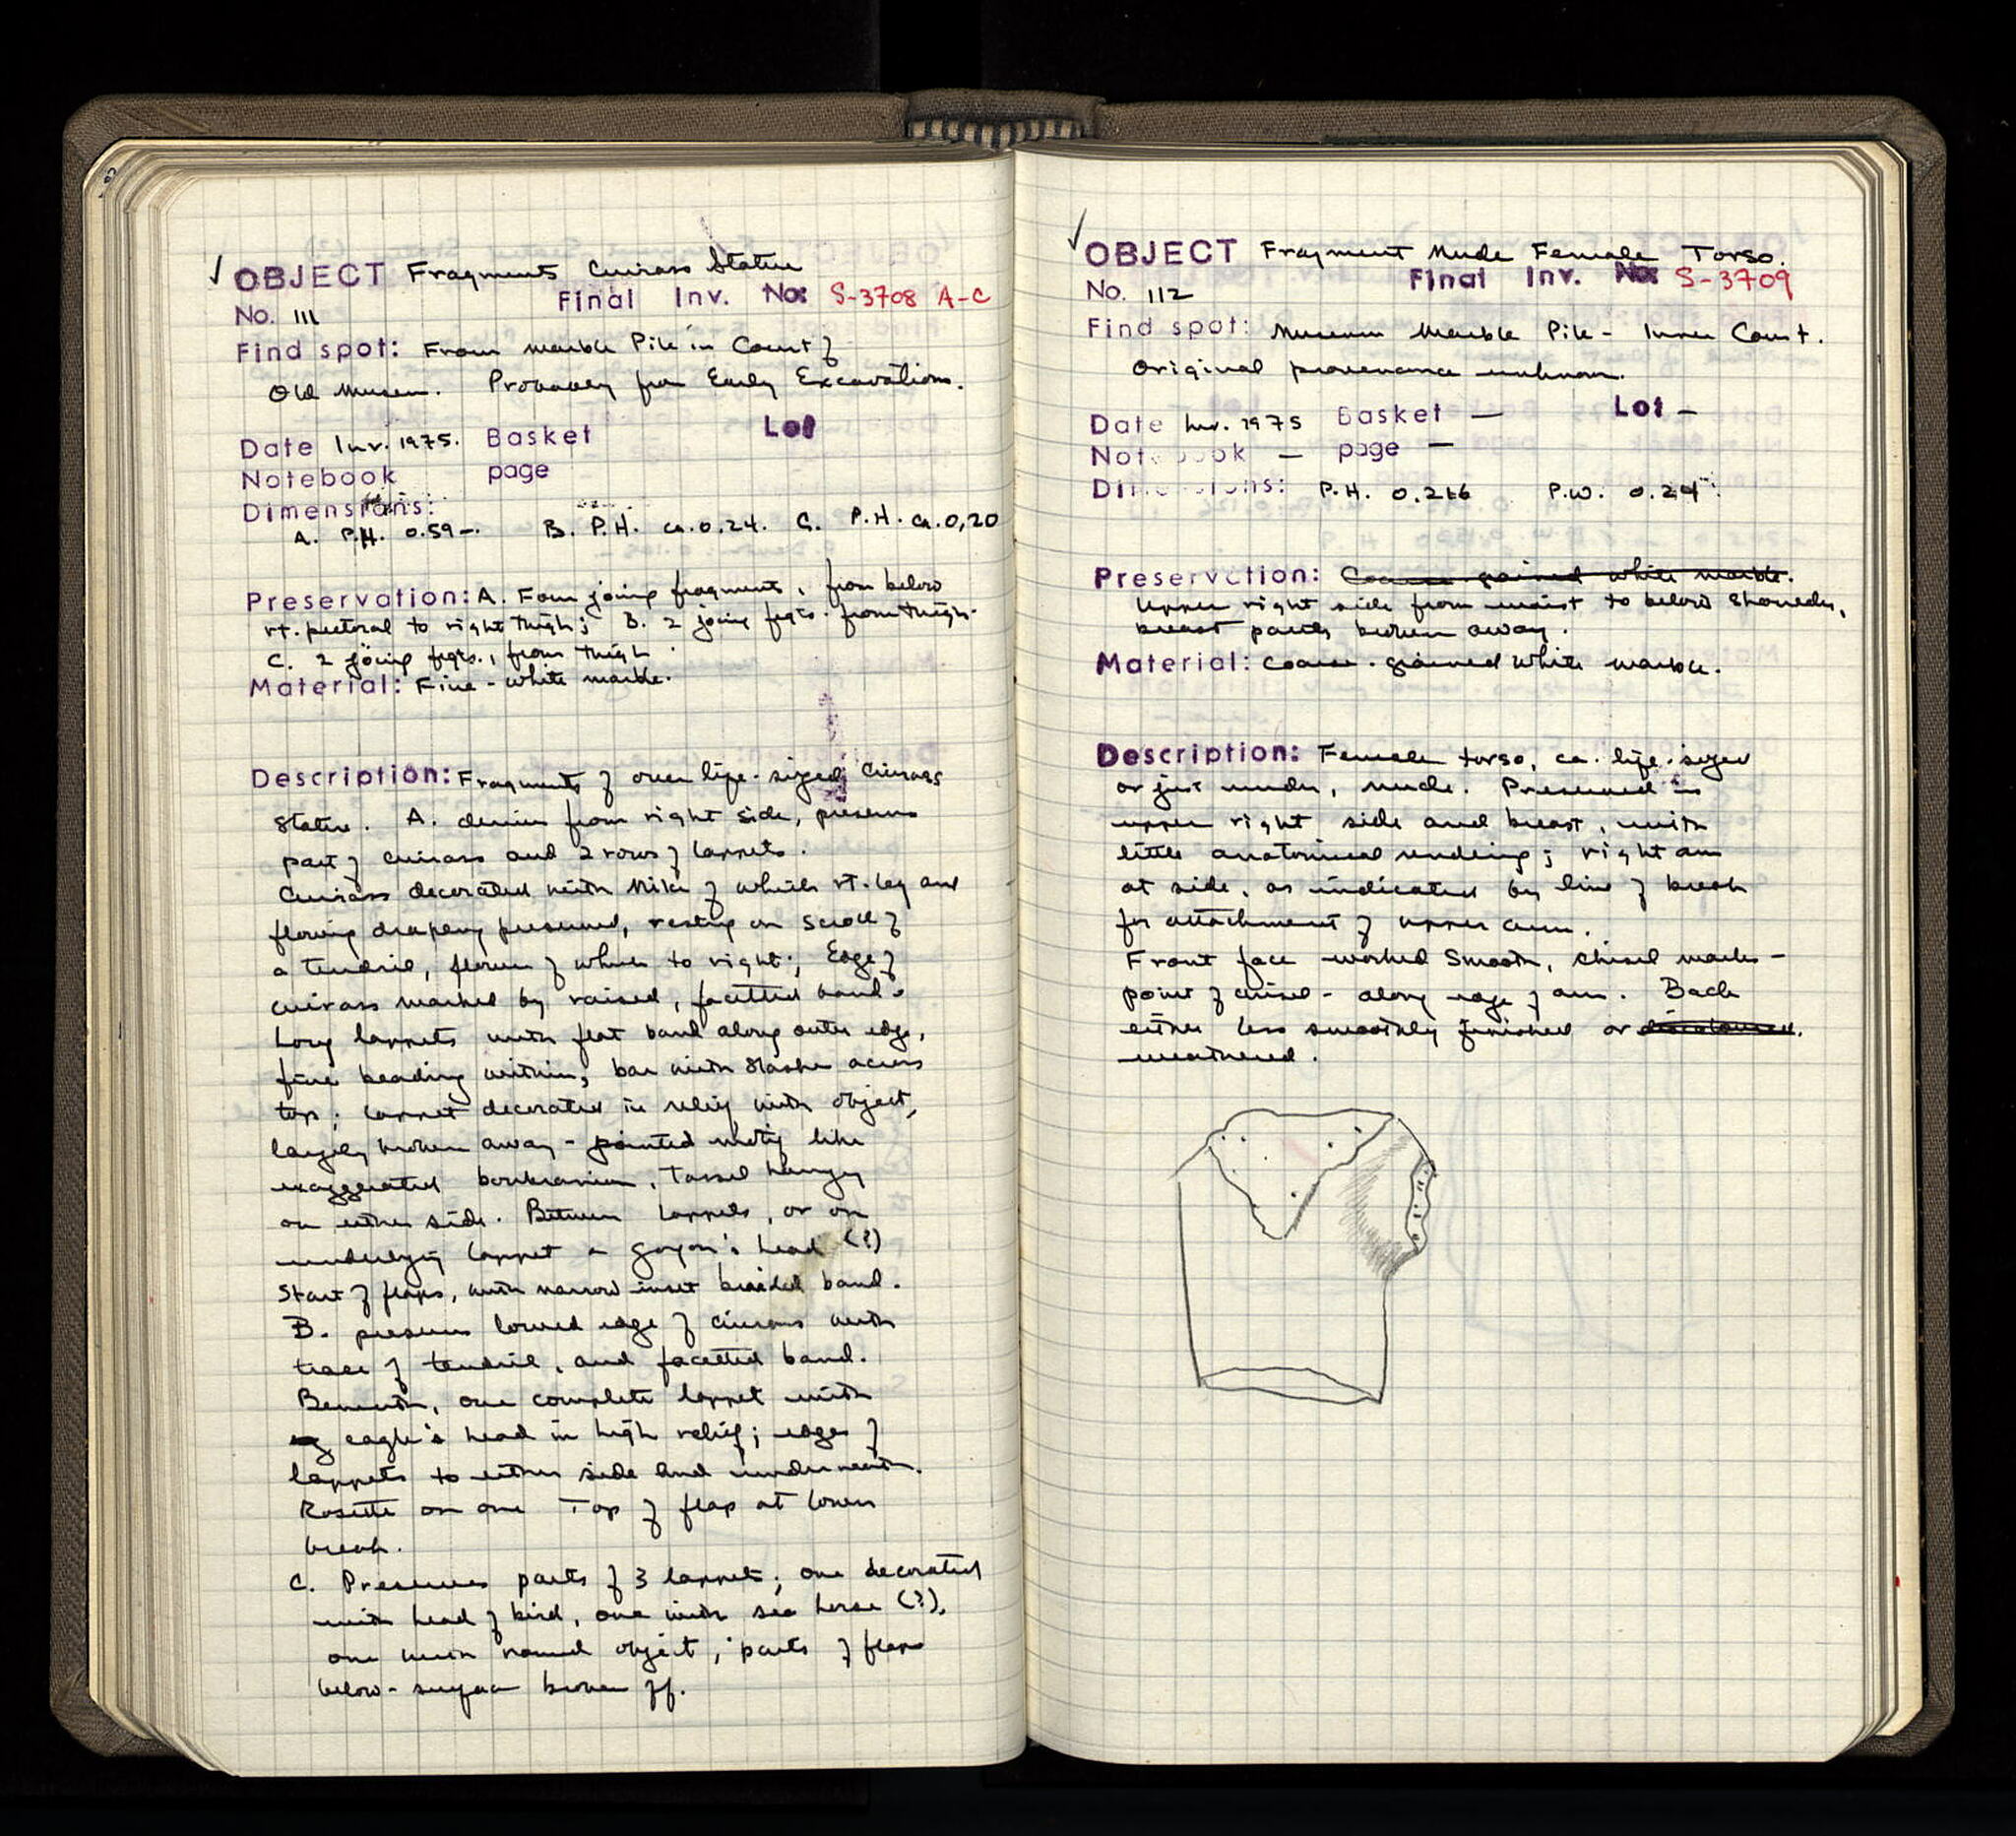 ✓ OBJECT Fragments Cuirass Statue
Final Inv. No: S-3708 A-C
No. 111
Find spot: From Marble Pile in Court of
Old Museum. Probably from Early Excavations.
Date Inv. 1975. Basket Lot
Notebook page
Dimensions:
A. P.H. 0.59-. B. P.H. ca. 0.24. C. P.H. ca. 0,20
Preservation: A. Four joing fragments, from below
rt. pectoral to right thigh; B. 2 joing frgts. from thigh.
C. 2 joing frgts., from thigh.
Material: Fine-white marble.
Description: Fragments of over life-sized Cuirass
Statue. A. derives from right side, preserves
part of cuirass and 2 rows of lappets.
Cuirass decorated with Nike of which rt. leg and
flowing drapery preserved, resting on scroll of
a tendril, flower of which to right; Edge of
cuirass marked by raised, facetted band.
Long lappets with flat band along outer edge,
fine beading within, bar with slashes across
top; lappet decorated in relief with object,
largely broken away - pointed motif like
exaggerated boukranion, Tassel hanging
on either side. Between lappets, or on
underlying lappet a gorgon's head (?)
Start of flaps, with narrow inset beaded band.
B. preserves lowed edge of cuirass with
trace of tendril, and facetted band.
Beneath, one complete lappet with
eagle's head in high relief; edges of
lappets to either side and underneath.
Rosette on one Top of flap at lower
break.
C. Preserves parts of 3 lappets; one decorated
with head of bird, one with sea horse (?),
one with round object; parts of flaps
below - surface broken off.
✓ OBJECT Fragment Nude Female Torso.
Final Inv. No: S-3709
No. 112
Find spot: Museum Marble Pile - Inner Court.
Original provenance unknown.
Date Inv. 1975 Basket — Lot —
Notebook — page —
Dimensions: P.H. 0.216 P.W. 0.24
Preservation: Coarse-grained white marble.
Upper right side from waist to below shoulder,
breast partly broken away.
Material: Coarse-grained white marble.
Description: Female torso, ca. life-sized
or just under, nude. Preserved is
upper right side and breast, with
little anatomical rendering; right arm
at side, as indicated by line of break
for attachment of upper arm.
Front face worked smooth, chisel marks -
point of chisel - along edge of arm. Back
either less smoothly finished or
weathered.